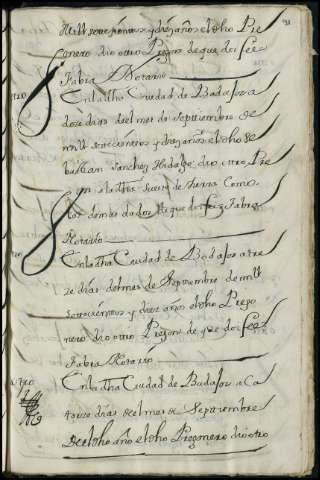 Mill setecientos y diez años el dho Pre
gonero dio otro Pregon de que doi fee
Fabra Notario
En la dha Ciudad de Badajoz a
doze dias del mes de Septiembre de
mill setecientos y diez años el dho Se
bastian Sanchez Hidalgo dio otro Pre
gon a la dha de tierra Como
los demas dados de que doi fee Fabra
Notario
En la dha Ciudad de Badajoz a tre
ze dias del mes de Septiembre de mill
setecientos y diez años el dho Prego
nero dio otro Pregon de que doi fee
Fabra Notario
En la dha Ciudad de Badajoz a Ca
torze dias del mes de Septiembre
de el dho año el dho Pregonero dio otro